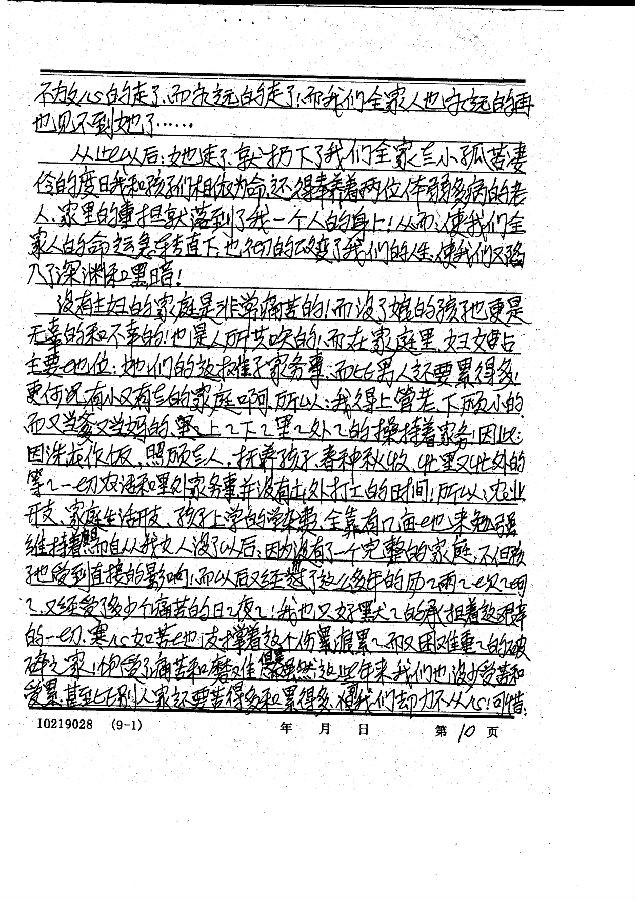 不放心的走了，而永远的走了！而我们全家人也永远的再
也见不到她了……
从此以后：她走了，就扔下了我们全家老小孤苦凄
伶的度日我和孩子们相依为命，还得奉养着两位体弱多病的老
人，家里的重担就落到了我一个人的身上！从而：使我们全
家人的命运急转直下：也彻底的改变了我们的人生，使我们又陷
入了深渊和黑暗！
没有主妇的家庭是非常痛苦的！而没了娘的孩子也更是
无辜的和不幸的！也是人所共映的！而在家庭里，妇女占
主要地位：她们的家务事：而比男人还要累得多！
更何况，有小又有老的家庭啊，所以：我得上管老，下顾小的
而又当爹又当妈的，上下里外的操持着家务！因此：
因洗衣作饭，照顾老人，抚养孩子，春种秋收，忙里又忙外的
等一切农活和里外家务事，并没有出外打工的时间！所以：农业
开支，家庭生活开支，孩子上学的学杂费，全靠有几亩地来勉强
维持着，而自从我女人没了以后：因为没有了一个完整的家庭，不但孩
子也受到直接的影响！而以后又经过了这么多年的
又经受了多少个痛苦的日夜！我也只好默默的承担着这艰辛
的一切，寒心如苦也支撑着这个伤累累而又困难重重的破
碎之家！饱受了痛苦和磨难，虽然这些年来，我们也没少受苦和
受累，甚至比别人家还要苦得多和累得多，但我们却力不从心！可惜：
10219028 (9-1) 年 月 日 第 10 页